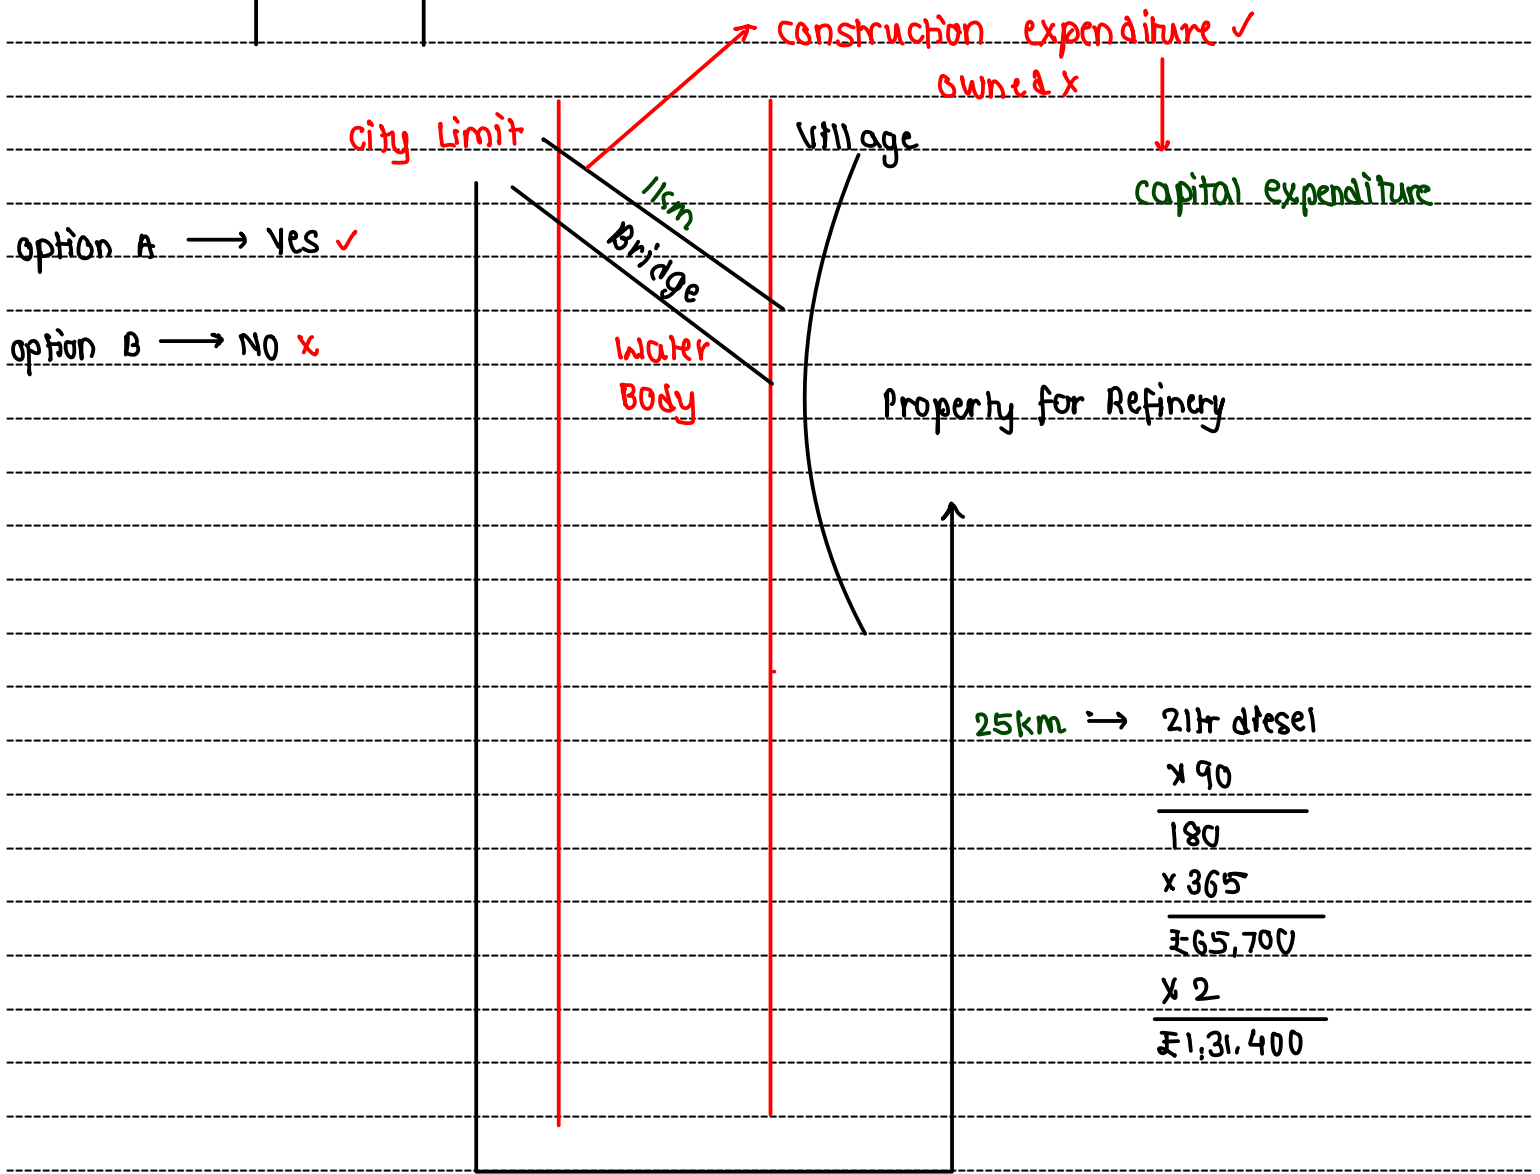 construction expenditure ✓
owned x
City Limit
Village
capital expenditure
11km
option A → Yes ✓
Bridge
option B → NO x
Water
Body
Property for Refinery
25km → 2ltr diesel
x 90
180
x 365
₹65,700
x 2
₹1,31,400